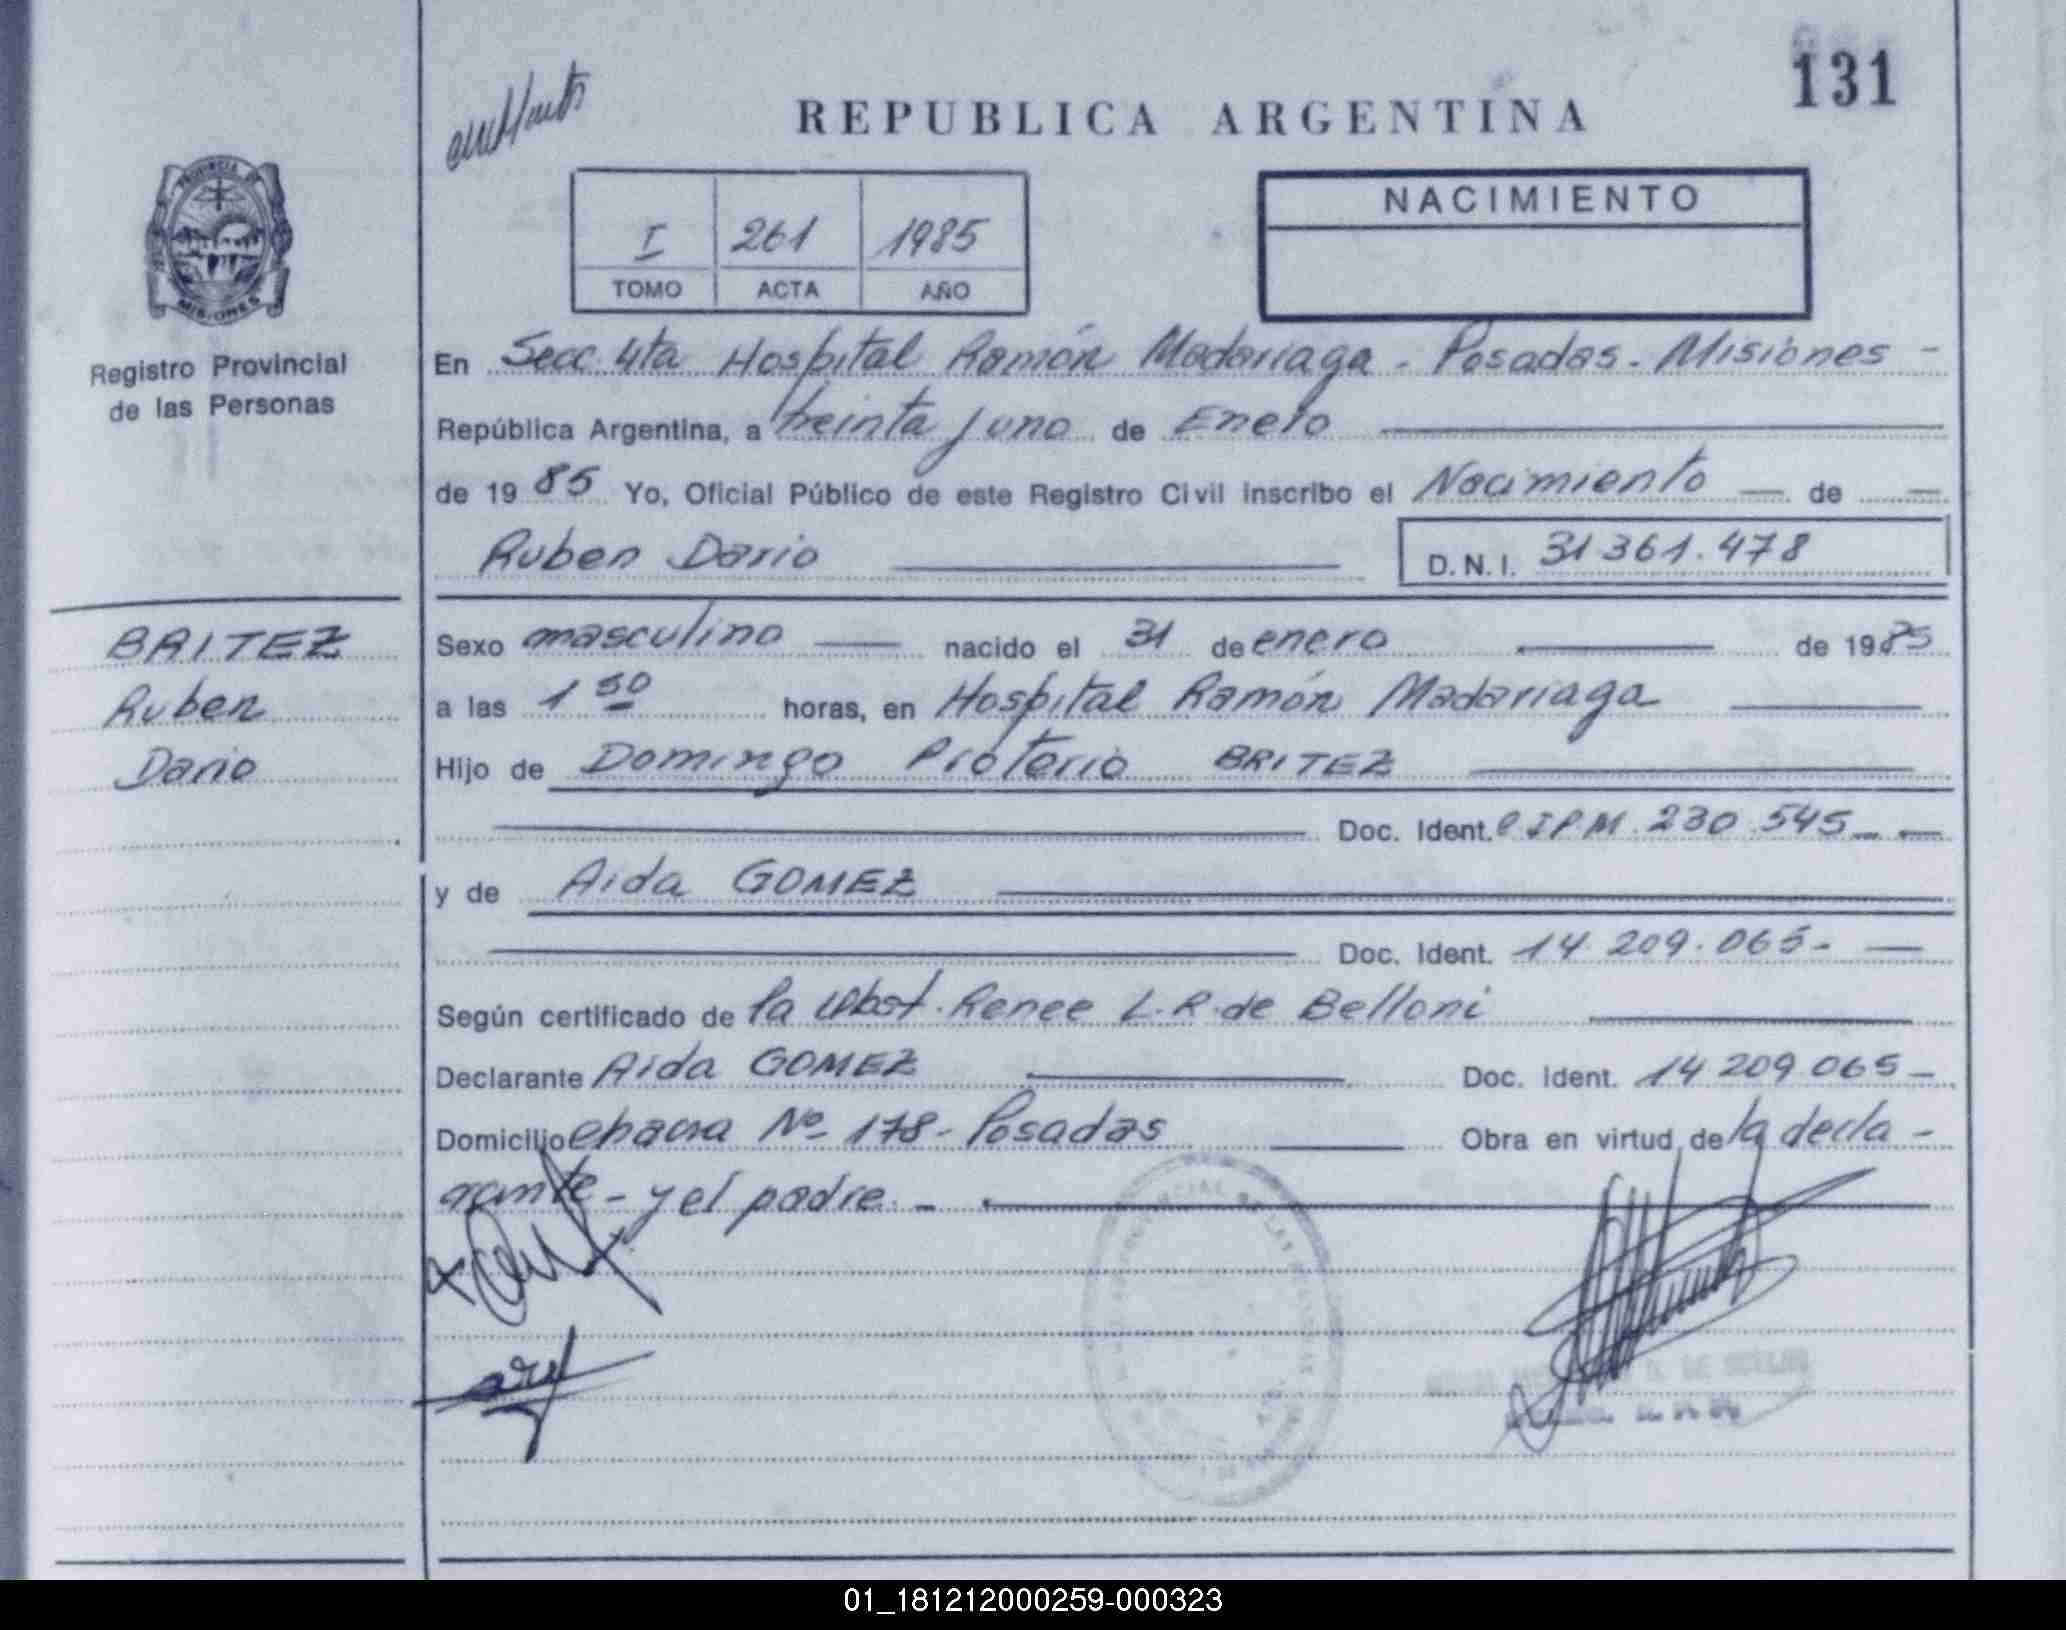 131
REPUBLICA ARGENTINA
PROVINCIA DE
MISIONES
Registro Provincial
de las Personas
I 261 1985
TOMO ACTA AÑO
NACIMIENTO
En Secc. 4ta Hospital Ramón Madariaga - Posadas - Misiones -
República Argentina, a treinta y uno de Enero
de 1985 Yo, Oficial Público de este Registro Civil inscribo el Nacimiento — de —
Ruben Dario
D.N.I. 31 361.478
BRITEZ
Ruben
Dario
Sexo masculino — nacido el 31 de enero — de 1985
a las 1 50 horas, en Hospital Ramón Madariaga
Hijo de Domingo Proterio BRITEZ
Doc. Ident. CIPM 230.545 -
y de Aida GOMEZ
Doc. Ident. 14.209.065 -
Según certificado de la Obst. Renee L.R. de Belloni
Declarante Aida GOMEZ — Doc. Ident. 14 209 065 -
Domicilio chacra Nº 178 - Posadas — Obra en virtud de la decla -
rante - y el padre. -
01_181212000259-000323